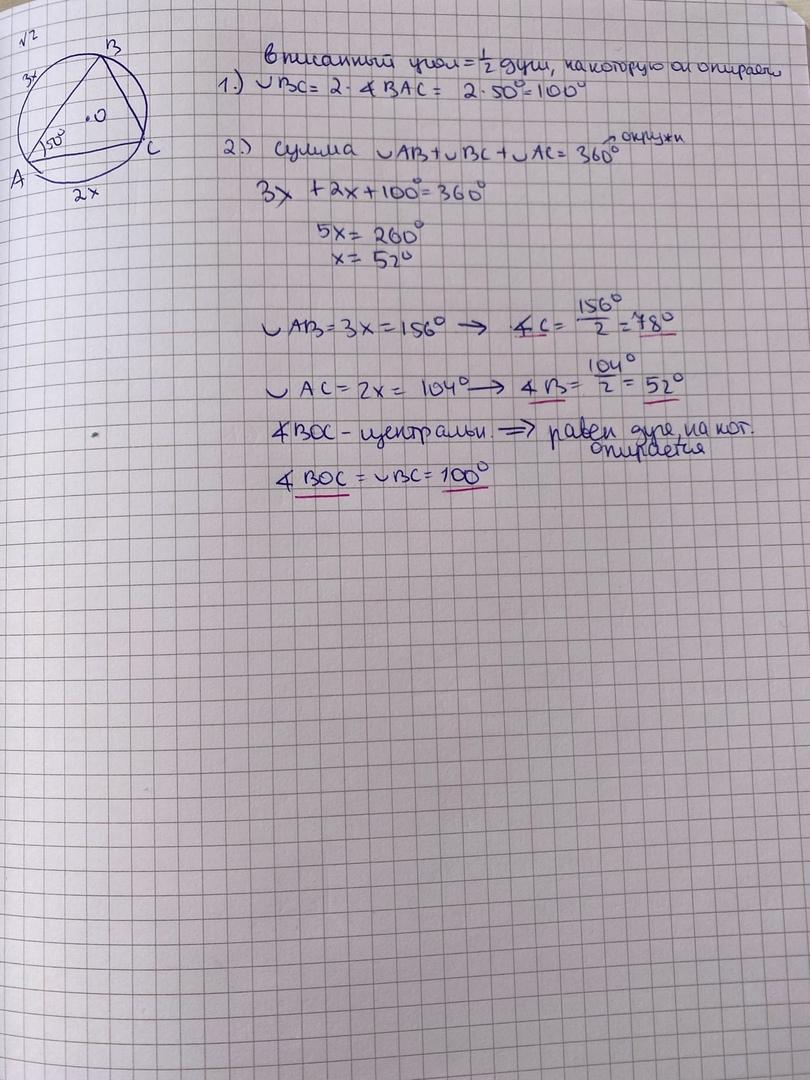 √2
B
3x
O
50°
C
A
2x
вписанный угол = 1/2 дуги, на которую он опирается
1.) ◡BC = 2 · ∡BAC = 2·50° = 100°
2.) сумма ◡AB + ◡BC + ◡AC = 360° → окружн
3x + 2x + 100° = 360°
5x = 260°
x = 52°
◡AB = 3x = 156° → ∡C = 156°/2 = 78°
◡AC = 2x = 104° → ∡B = 104°/2 = 52°
∡BOC – центральн. => равен дуге, на кот.
опирается
∡BOC = ◡BC = 100°